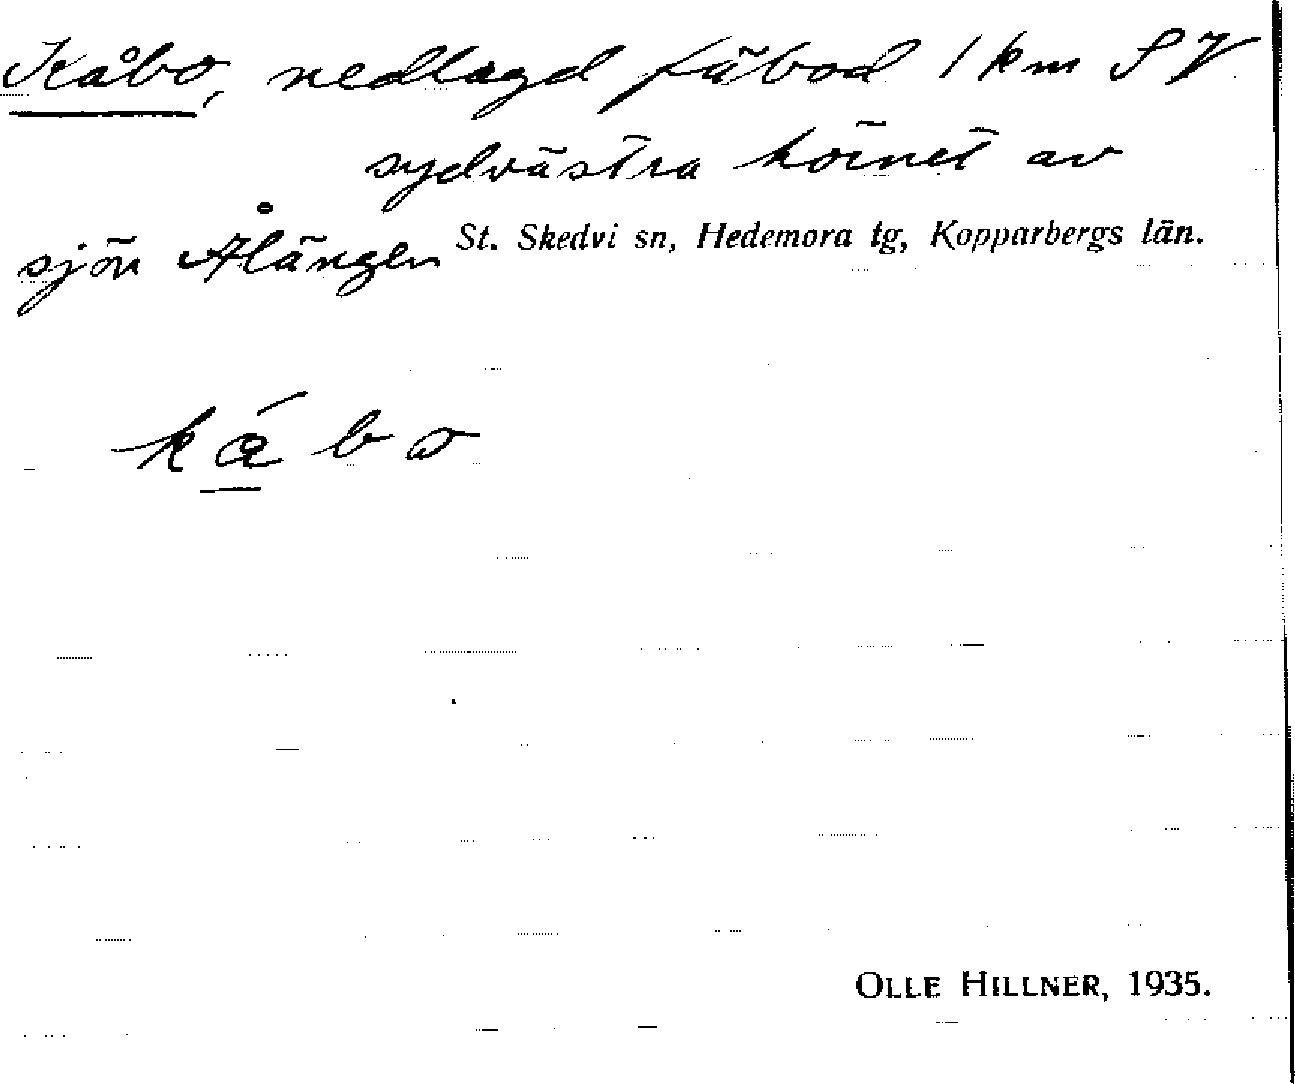 Kåbo, nedlagd fäbod 1 km SV
sydvästra hörnet av
sjön Ålängen St. Skedvi sn, Hedemora tg, Kopparbergs län.
kǻbo
OLLE HILLNER, 1935.